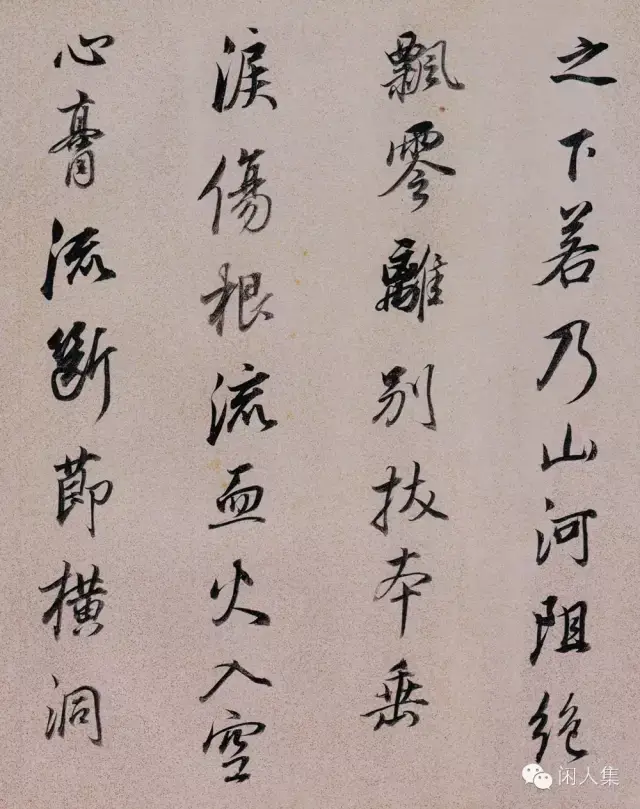 之下若乃山河阻絶
飄零離別拔本垂
淚傷根流血火入空
心膏流斷節橫洞
闲人集